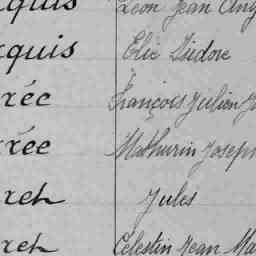 quis Léon Jean Ang
quis Elie Isidore
rée François Julien J
rée Mathurin Joseph
ret Jules
ret Célestin Jean Ma